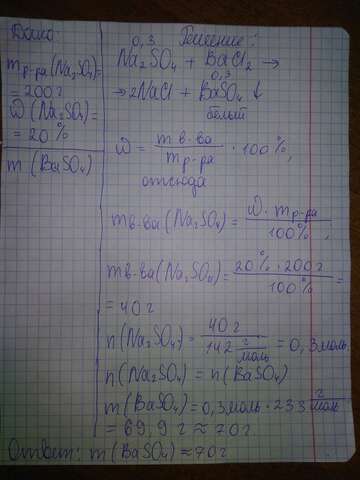 Дано:
m р-ра (Na₂SO₄) =
= 200 г
ω (Na₂SO₄) =
= 20 %
m (BaSO₄)
Решение:
0,3
Na₂SO₄ + BaCl₂ →
0,3
→ 2NaCl + BaSO₄ ↓
белый
ω = m в-ва / m р-ра · 100 %,
отсюда
m в-ва (Na₂SO₄) = ω · m р-ра / 100 %,
m в-ва (Na₂SO₄) = 20 % · 200 г / 100 % =
= 40 г
n (Na₂SO₄) = 40 г / 142 г/моль = 0,3 моль
n (Na₂SO₄) = n (BaSO₄)
m (BaSO₄) = 0,3 моль · 233 г/моль
= 69,9 г ≈ 70 г
Ответ: m (BaSO₄) ≈ 70 г